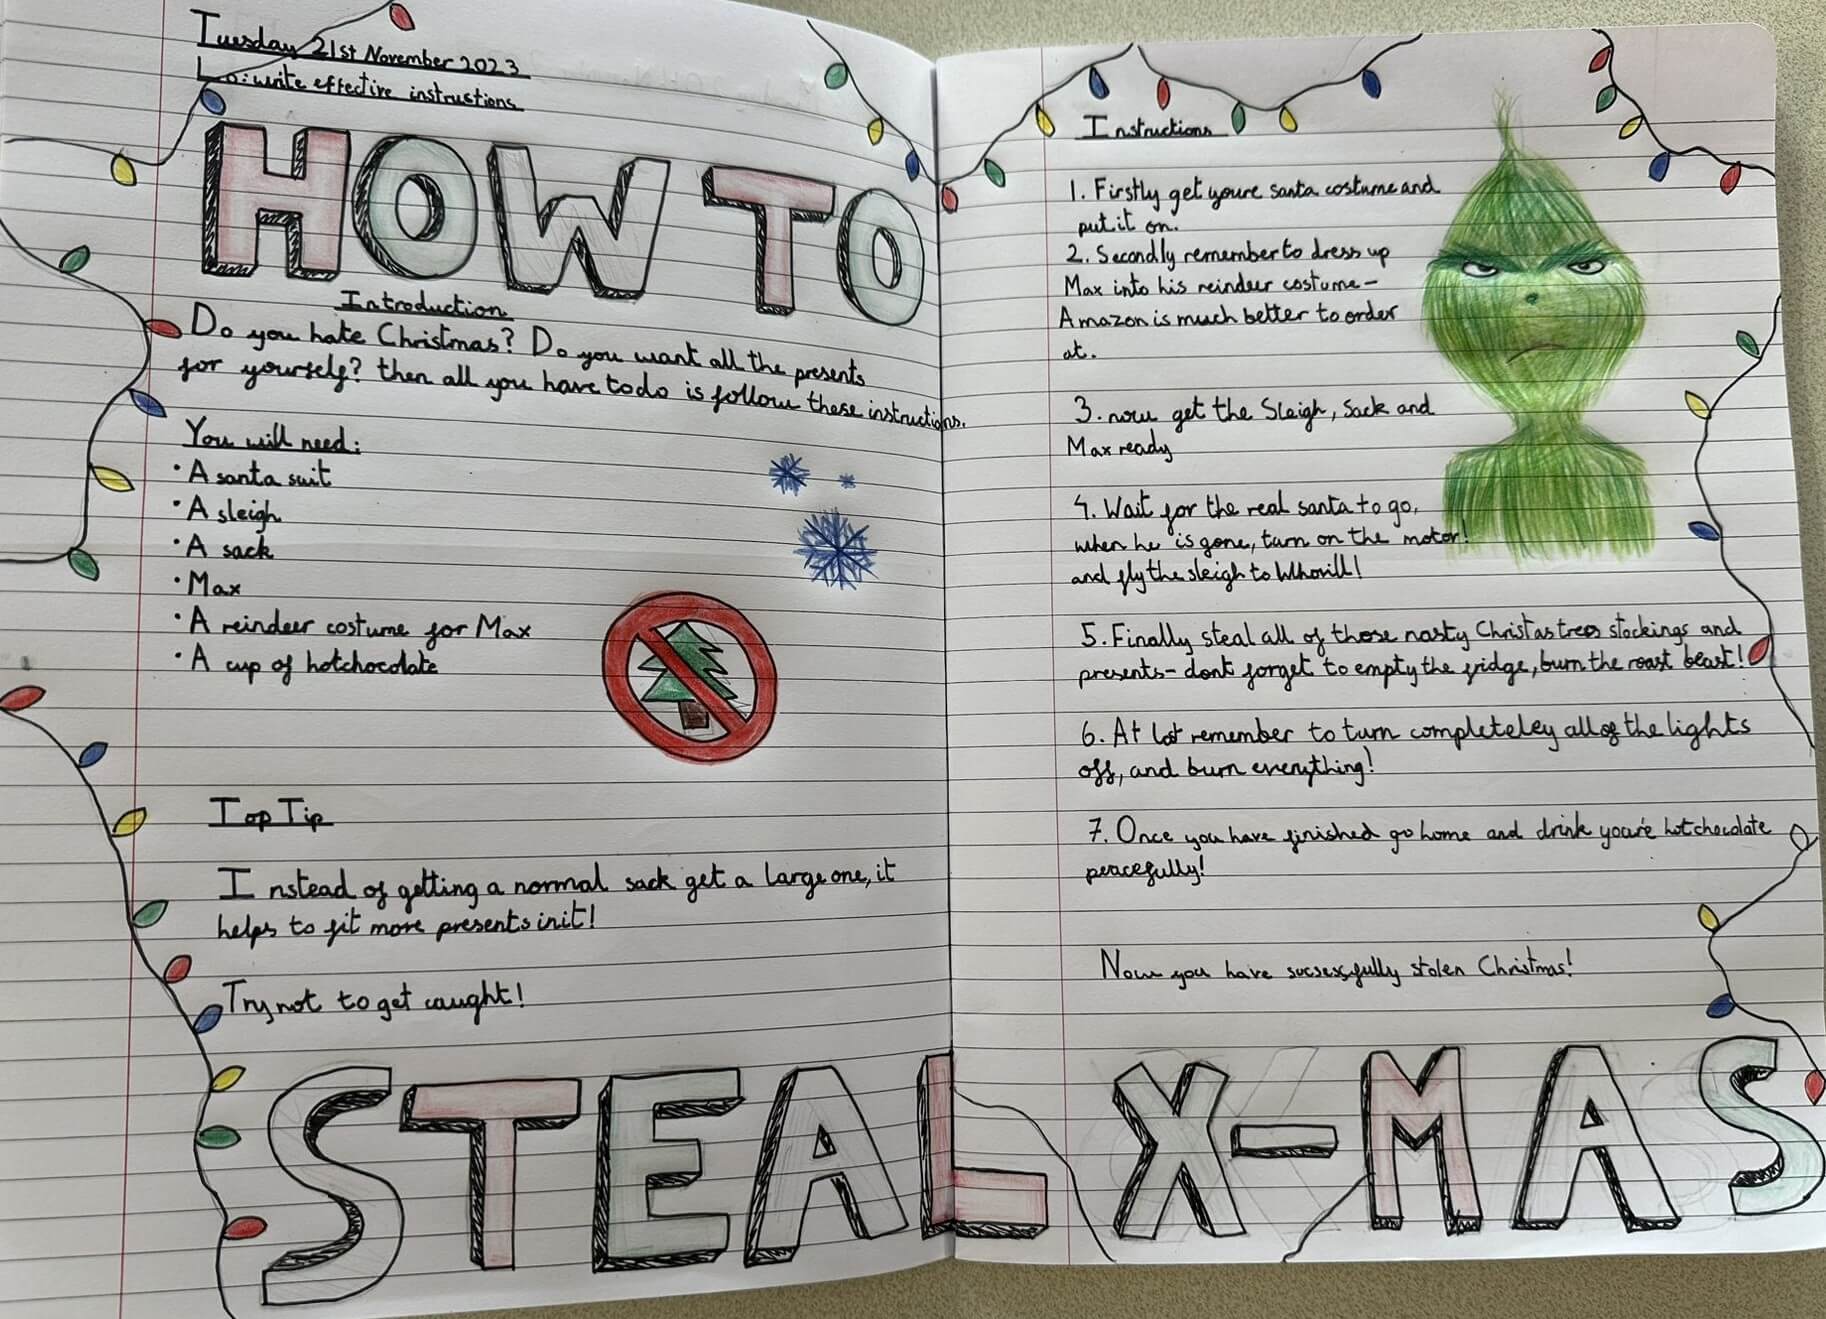 Tuesday 21st November 2023
L.o: write effective instructions
HOW TO
Introduction
Do you hate Christmas? Do you want all the presents
for yourself? then all you have to do is follow these instructions.
You will need:
• A santa suit
• A sleigh
• A sack
• Max
• A reindeer costume for Max
• A cup of hotchocolate
Top Tip
Instead of getting a normal sack get a large one, it
helps to fit more presents in it!
Try not to get caught!
Instructions
1. Firstly get youre santa costume and
put it on.
2. Secondly remember to dress up
Max into his reindeer costume-
Amazon is much better to order
at.
3. now get the Sleigh, Sack and
Max ready
4. Wait for the real santa to go,
when he is gone, turn on the motor!
and fly the sleigh to Whovill!
5. Finally steal all of those nasty Christas trees stockings and
presents- dont forget to empty the fridge, burn the roast beast!
6. At last remember to turn completeley all of the lights
off, and burn everything!
7. Once you have finished go home and drink youre hotchocolate
peacefully!
Now you have sucsessfully stolen Christmas!
STEAL X-MAS